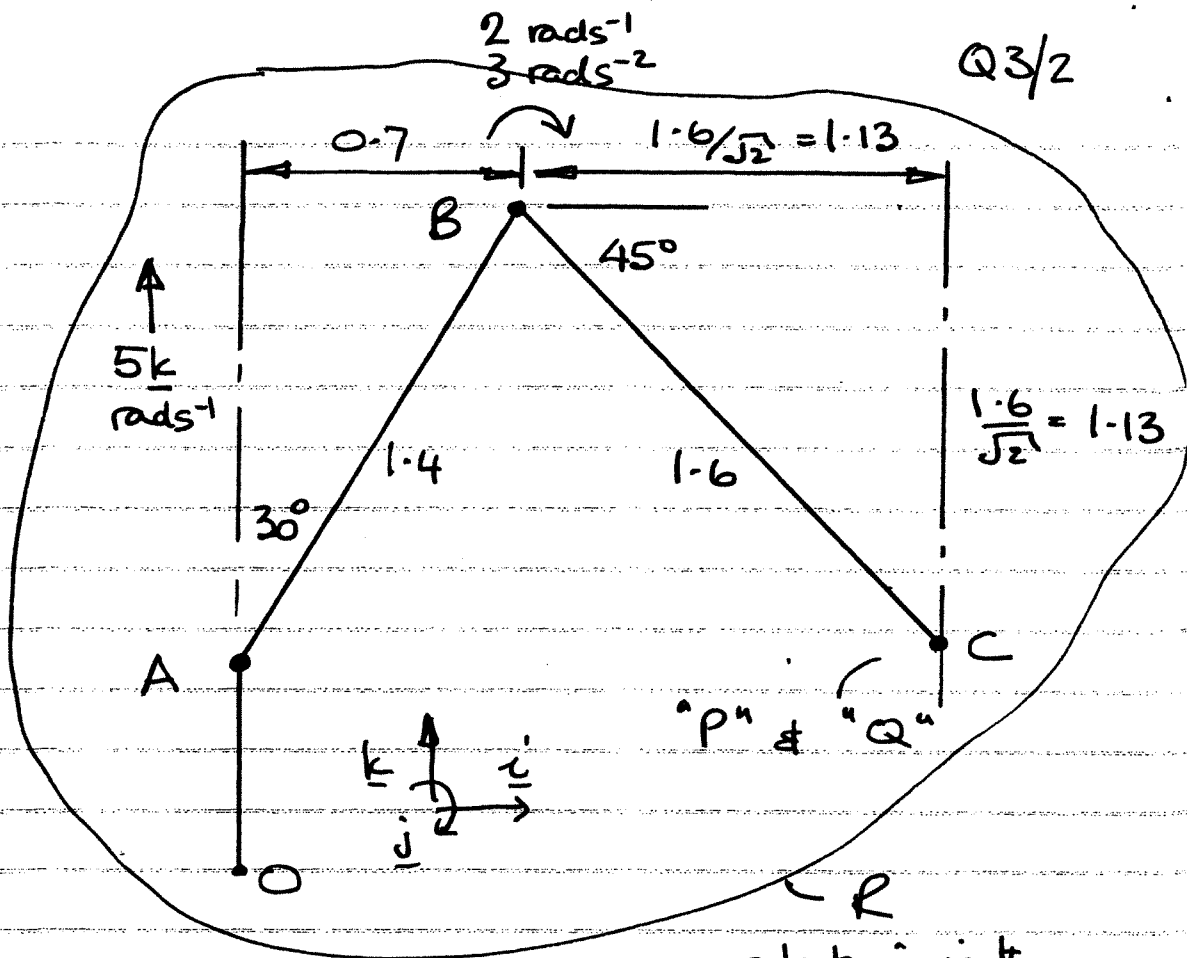 2 rads⁻¹
3 rads⁻²
Q3/2
0.7
1.6/√2 = 1.13
B
45°
5k
rads⁻¹
1.6/√2 = 1.13
1.4
1.6
30°
A
C
"P" & "Q"
k
i
j
O
R